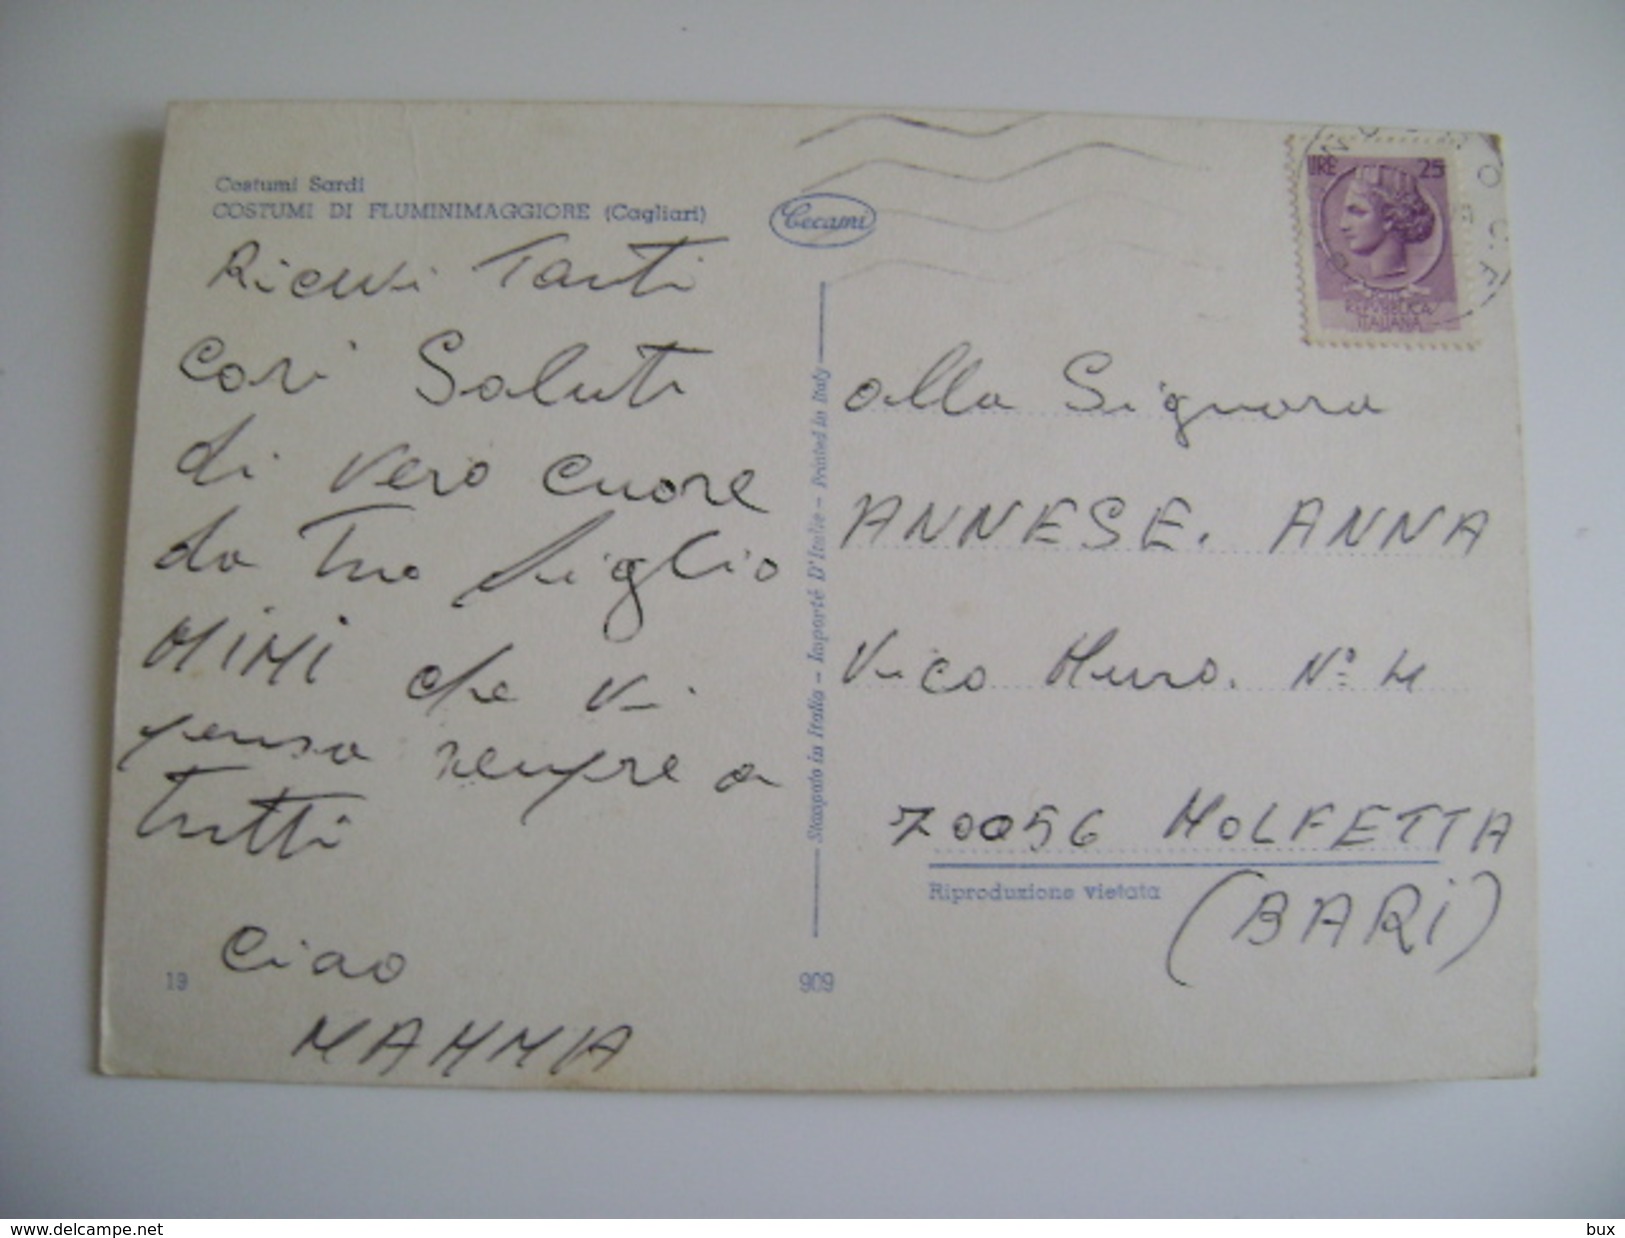 Costumi Sardi
COSTUMI DI FLUMINIMAGGIORE (Cagliari)
Cecami
Ricevi Tanti
Cari Saluti
di vero cuore
da Tuo figlio
MIMI che vi
pensa sempre a
Tutti
Ciao
MAMMA
19
909
Stampato in Italia - Importé D'Italie - Printed in Italy
LIRE 25
REPVBBLICA
ITALIANA
alla Signora
ANNESE. ANNA
Vico Muro. N° 4
70056 MOLFETTA
(BARI)
Riproduzione vietata
https://www.delcampe.net
bux